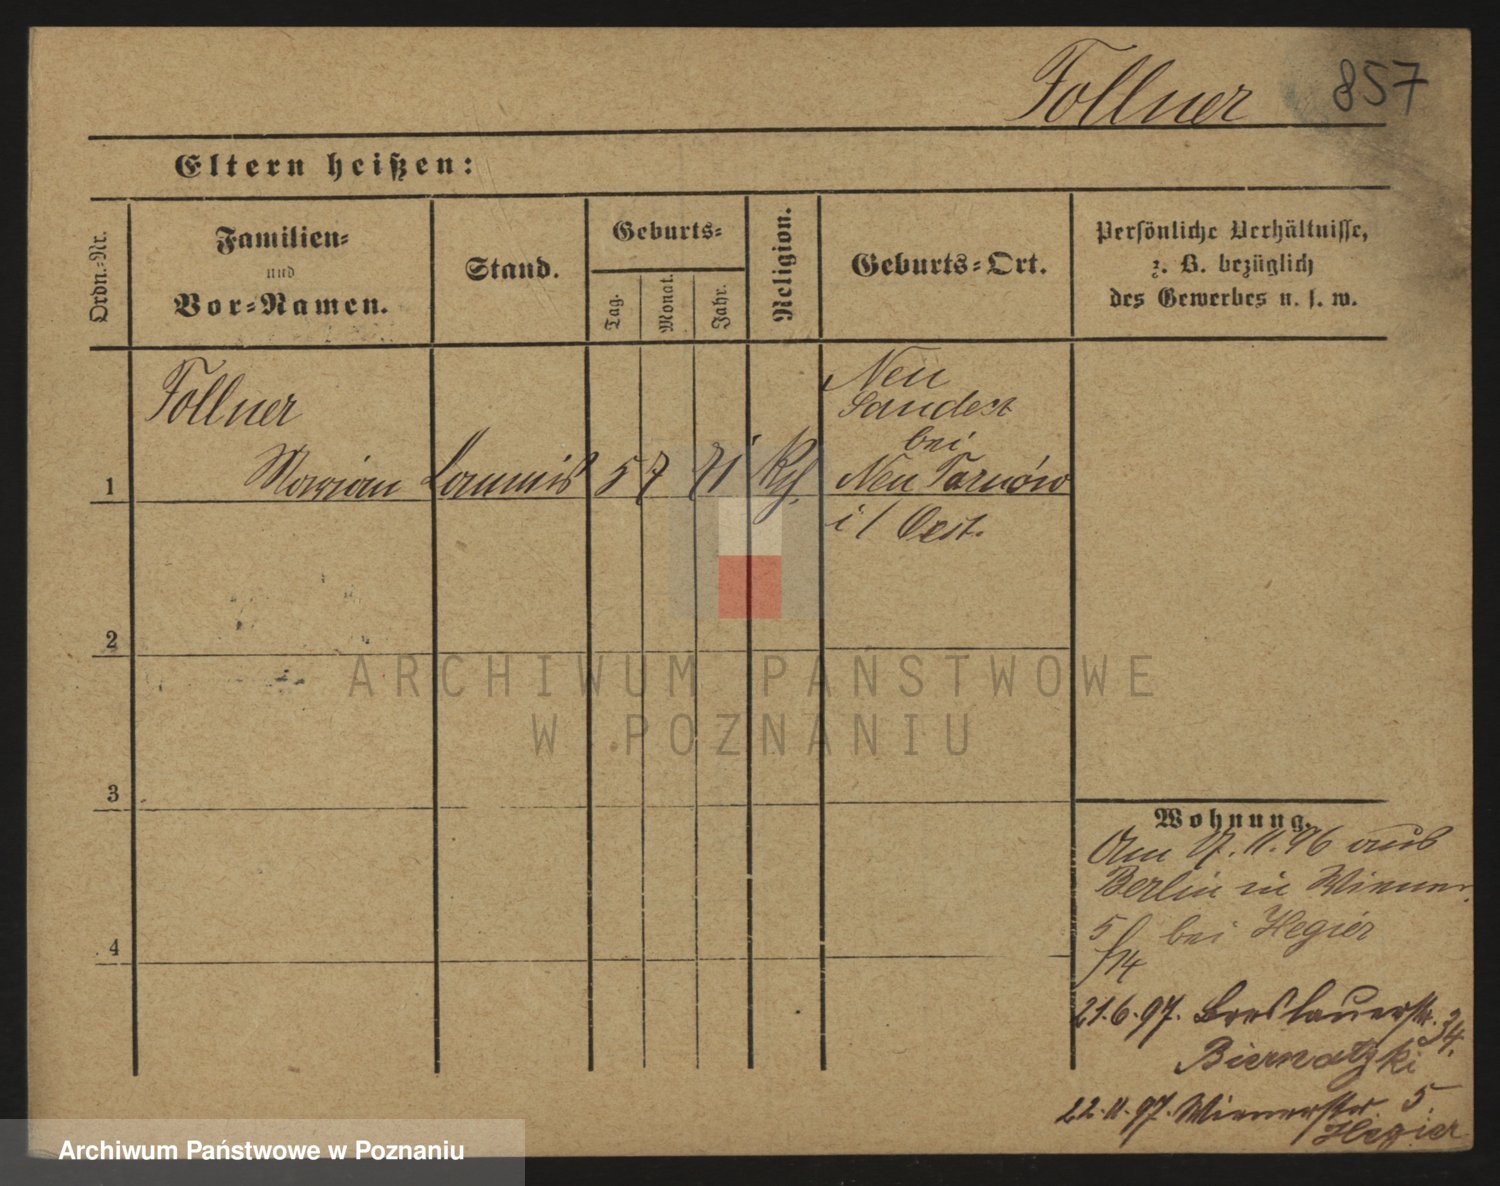 Follner 857
Eltern heißen:
Ordn.-Nr.
Familien-
und
Vor-Namen.
Stand.
Geburts-
Tag.
Monat.
Jahr.
Religion.
Geburts-Ort.
Persönliche Verhältnisse,
z. B. bezüglich
des Gewerbes u. s. w.
Follner
Neu
Sandest
bei
1 Marian Commis 5 7 71 Kth. Neu Tarnów
i/ Oest.
2
ARCHIWUM PAŃSTWOWE
W POZNANIU
3
Wohnung.
Am 17.11.96 aus
Berlin in Wiener
5 bei Hegier
/14
4
21.6.97. Breslauerstr. 34.
Biernatzki
22.11.97. Wienerstr. 5.
Hegier
Archiwum Państwowe w Poznaniu